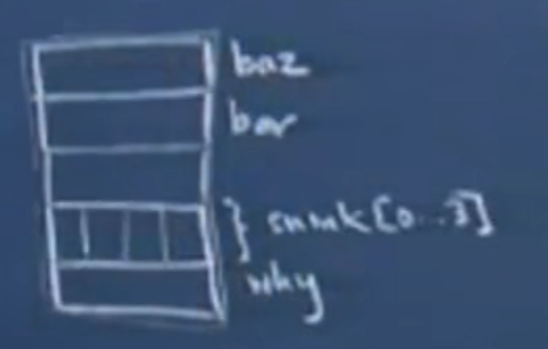 baz
bar
snink[0...3]
why